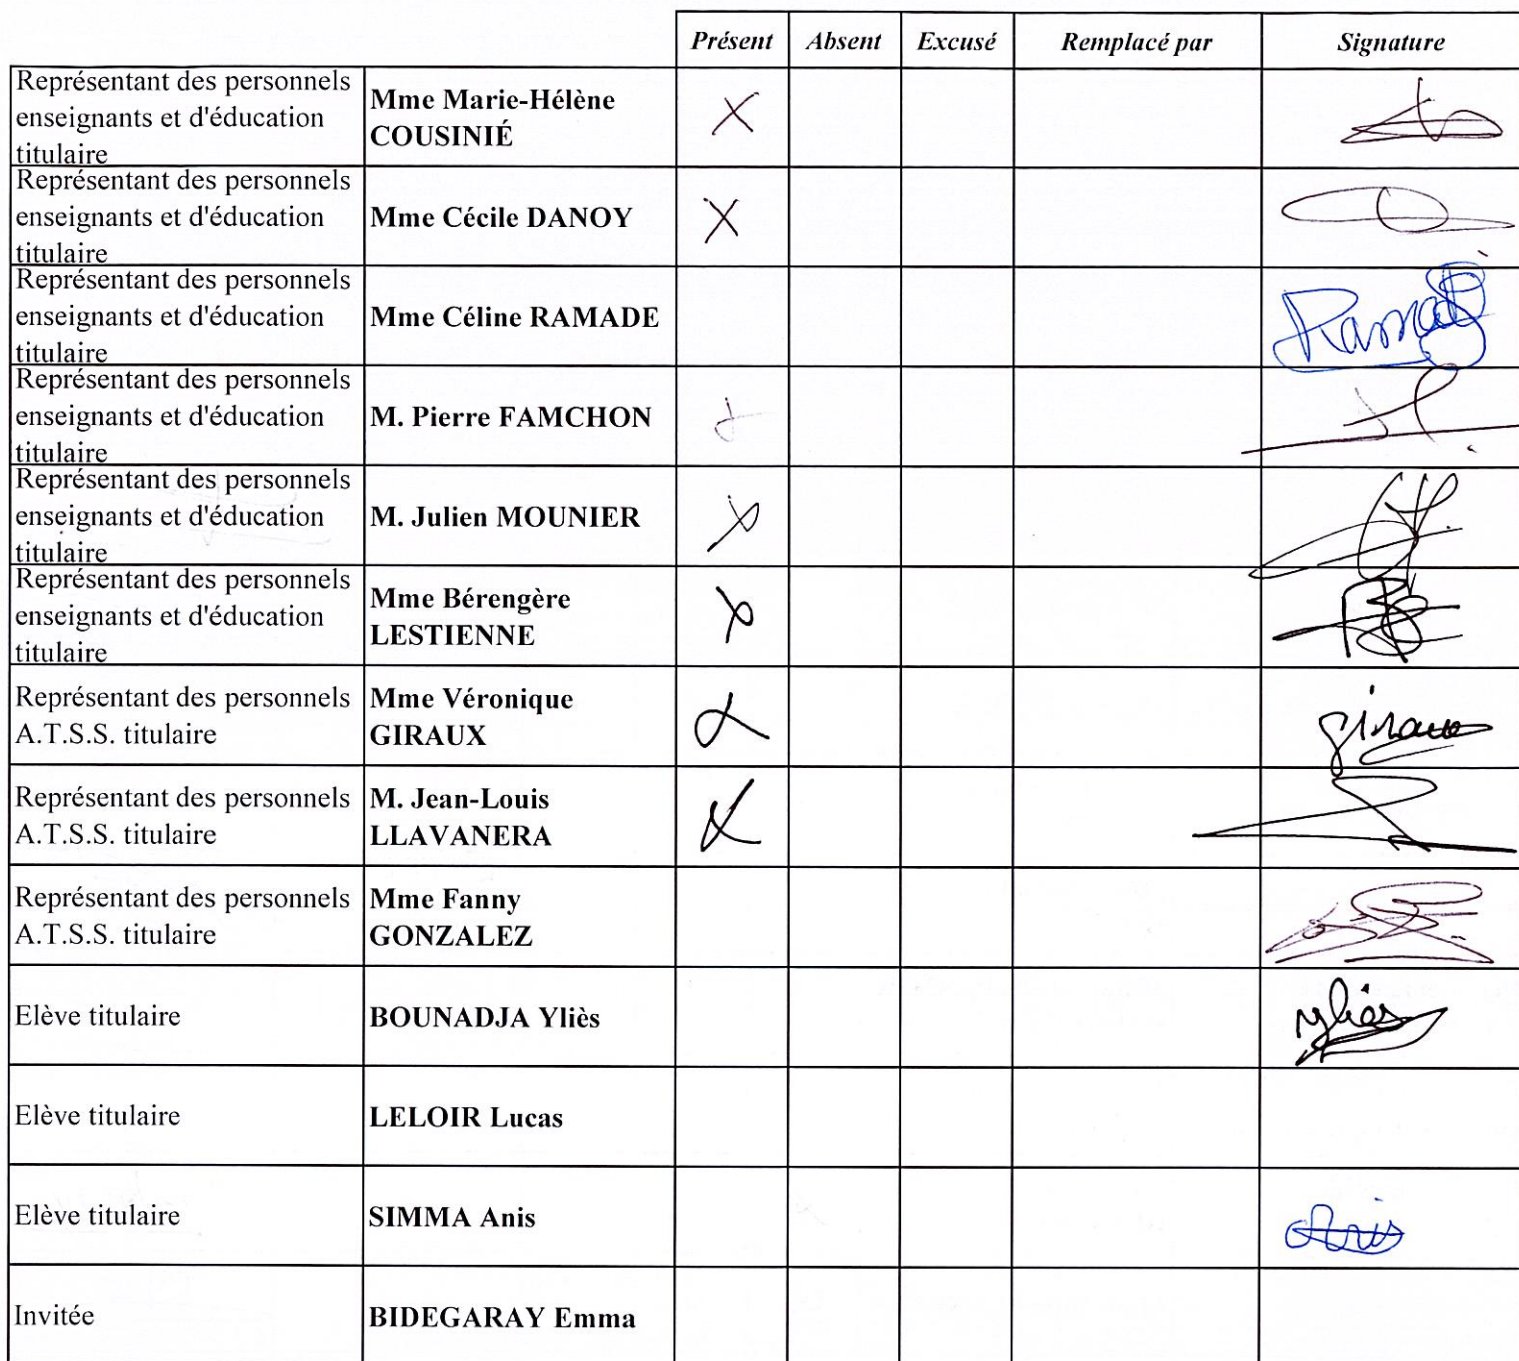 Présent Absent Excusé Remplacé par Signature
Représentant des personnels
enseignants et d'éducation
titulaire
Mme Marie-Hélène
COUSINIÉ
Représentant des personnels
enseignants et d'éducation
titulaire
Mme Cécile DANOY
Représentant des personnels
enseignants et d'éducation
titulaire
Mme Céline RAMADE
Représentant des personnels
enseignants et d'éducation
titulaire
M. Pierre FAMCHON
Représentant des personnels
enseignants et d'éducation
titulaire
M. Julien MOUNIER
Représentant des personnels
enseignants et d'éducation
titulaire
Mme Bérengère
LESTIENNE
Représentant des personnels
A.T.S.S. titulaire
Mme Véronique
GIRAUX
giraux
Représentant des personnels
A.T.S.S. titulaire
M. Jean-Louis
LLAVANERA
Représentant des personnels
A.T.S.S. titulaire
Mme Fanny
GONZALEZ
Elève titulaire
BOUNADJA Yliès
yliès
Elève titulaire
LELOIR Lucas
Elève titulaire
SIMMA Anis
Anis
Invitée
BIDEGARAY Emma